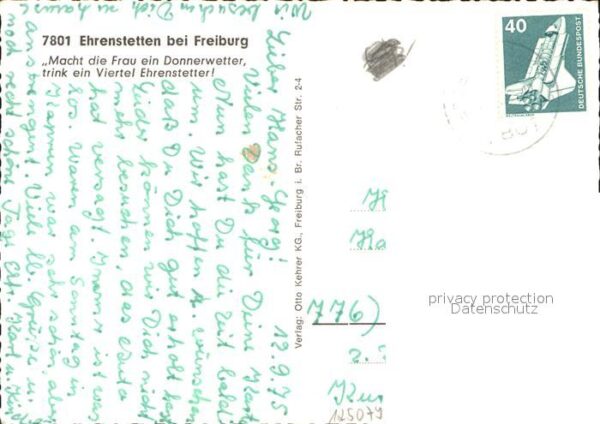 7801 Ehrenstetten bei Freiburg
„Macht die Frau ein Donnerwetter,
trink ein Viertel Ehrenstetter!
40
DEUTSCHE BUNDESPOST
Verlag: Otto Kehrer KG., Freiburg i. Br. Rufacher Str. 2-4
12.9.75
Lieber Hans-Georg!
Vielen Dank für Deine Karte
Nun hast Du die Zeit bald
um. Wir hoffen u. wünschen
daß Du Dich gut erholt hast
Leider können wir Dich nicht
mehr besuchen, das Auto
hat versagt. Immer ist was
los. waren am Sonntag in
war sehr schön, aber
anstrengend. Viele lb. Grüße u.
noch recht schöne Tage
Wir besuchen Dich
zu Hause
776)
125079
privacy protection
Datenschutz